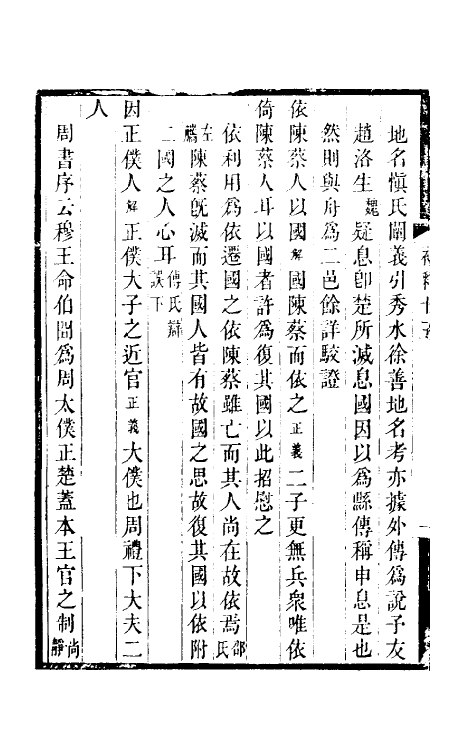 地名愼氏闇義引秀水徐善地名考亦據外傳爲說子友
趙洛生魏疑息卽楚所滅息國因以爲縣傳稱申息是也
然則與舟爲二邑餘詳駁證
依陳蔡人以國解國陳蔡而依之正義二子更無兵衆唯依
倚陳蔡人耳以國者許爲復其國以此招慰之
依利用爲依遷國之依陳蔡雖亡而其人尚在故依焉邵氏
左觿陳蔡旣滅而其國人皆有故國之思故復其國以依附
二國之人心耳傅氏辯誤下
因正僕人解正僕大子之近官正義大僕也周禮下大夫二
人
周書序云穆王命伯冏爲周太僕正楚蓋本王官之制尚靜